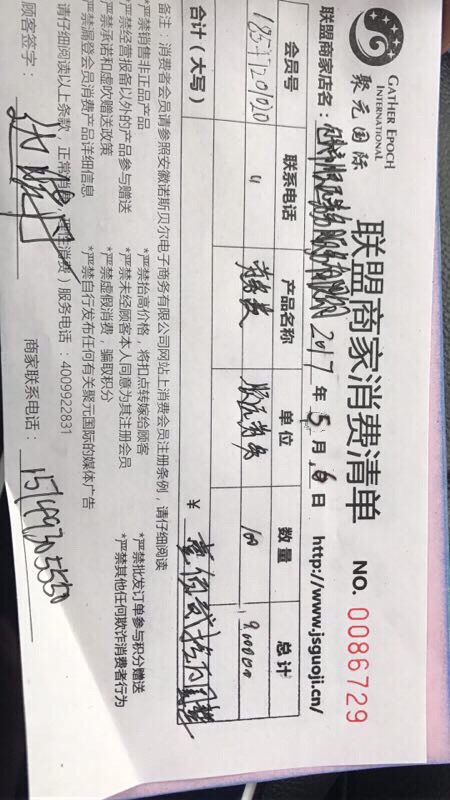 GATHER EPOCH
INTERNATIONAL
聚元国际
联盟商家消费清单
NO. 0086729
联盟商家店名：
2017年5月6日
http://www.jsguoji.cn/
会员号 联系电话 产品名称 单位 数量 总计
劳务费 100
合计（大写）
￥
备注：消费者会员请参照安徽诺斯贝尔电子商务有限公司网站上消费会员注册条例，请仔细阅读
*严禁销售非正品产品 *严禁抬高价格，将扣点转嫁给顾客 *严禁批发订单参与积分赠送
*严禁经营报备以外的产品参与赠送 *严禁未经顾客本人同意为其注册会员 *严禁其他任何欺诈消费者行为
*严禁承诺和虚吹赠送政策 *严禁虚假消费，骗取积分
*严禁漏登会员消费产品详细信息 *严禁自行发布任何有关聚元国际的媒体广告
请仔细阅读以上条款，正常消费，理性消费）服务电话：4009922831
顾客签字： 商家联系电话：